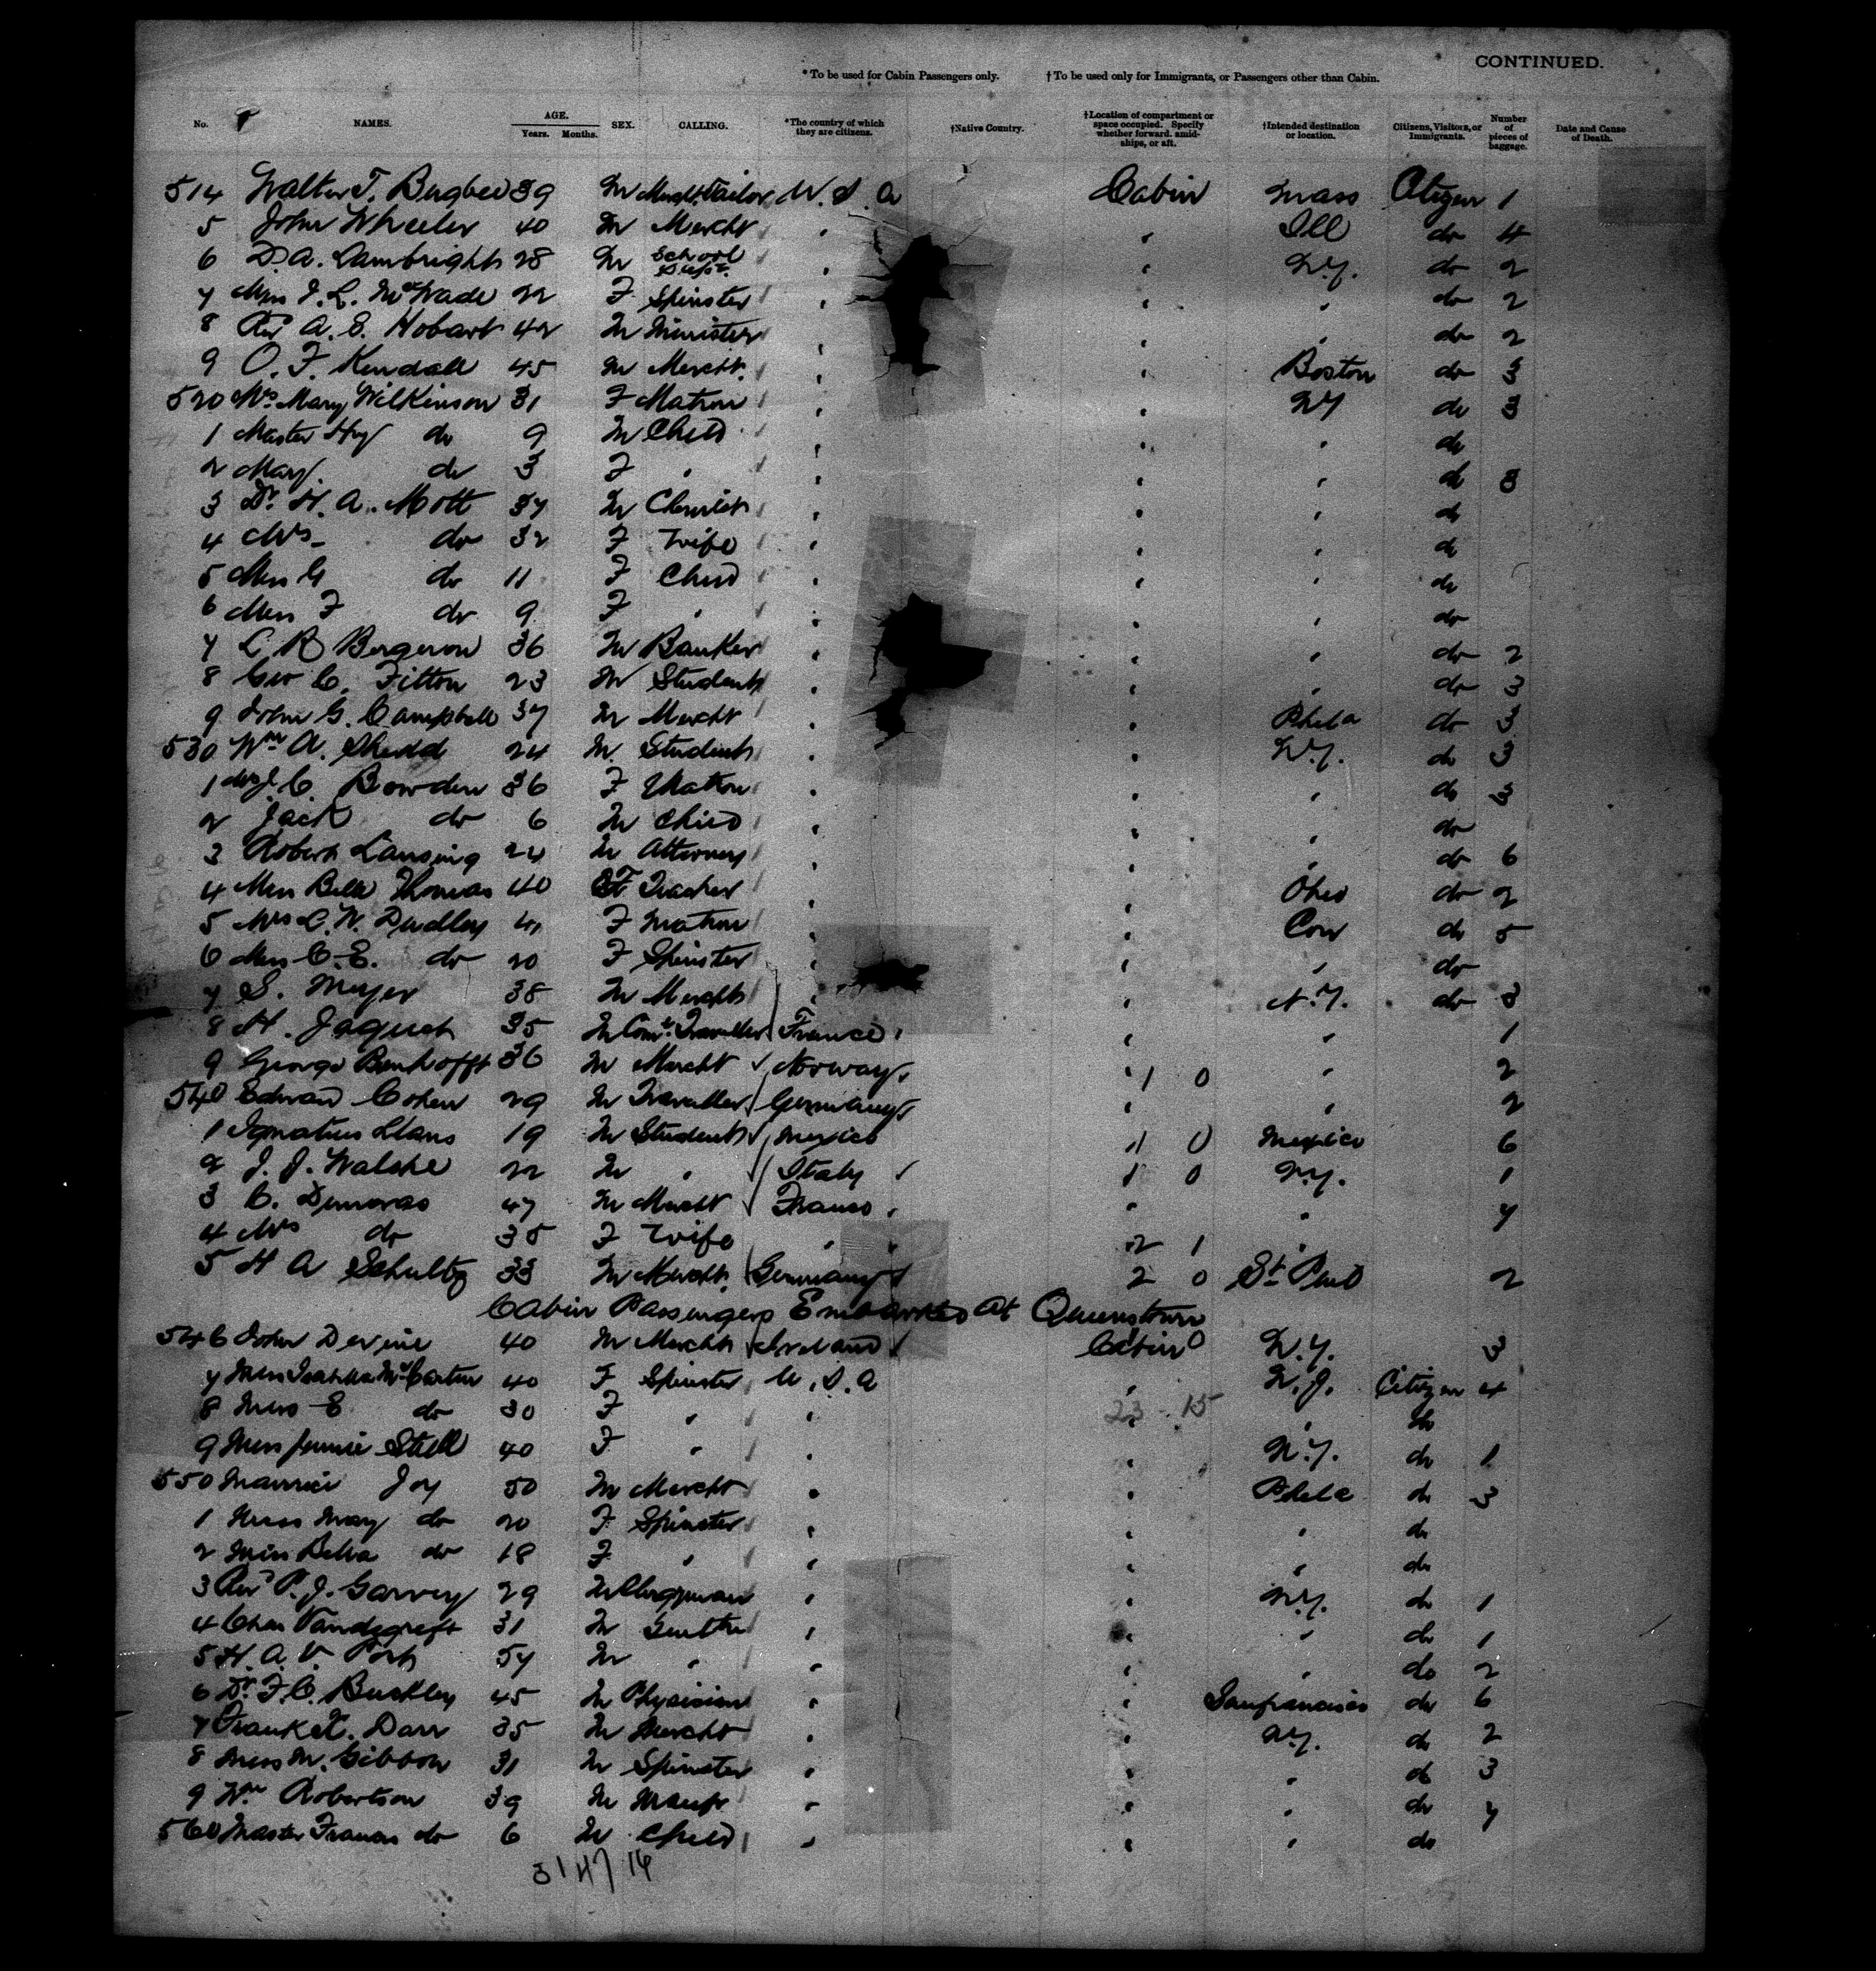 CONTINUED.
*To be used for Cabin Passengers only. †To be used only for Immigrants, or Passengers other than Cabin.
No. NAMES. AGE. Years. Months. SEX. CALLING. *The country of which they are citizens. †Native Country. †Location of compartment or space occupied. Specify whether forward, amidships, or aft. †Intended destination or location. Citizens, Visitors, or Immigrants. Number of pieces of baggage. Date and Cause of Death.
514 Walter T. Bugbee 39 M Merch. Tailor U.S.A Cabin Mass Citizen 1
5 John Wheeler 40 M Mercht " " Ill do 4
6 D. A. Lambright 28 M School Supt. " " N.Y. do 2
7 Miss J. L. McWade 22 F Spinster " " " do 2
8 Revd A. S. Hobart 42 M Minister " " " do 2
9 O. F. Kendall 45 M Mercht. " " Boston do 3
520 Mrs Mary Wilkinson 31 F Matron " " NY do 3
1 Master Hry do 9 M Child " " " do
2 Mary do 3 F " " " " do 8
3 Dr. H. A. Mott 37 M Chemist " " " do
4 Mrs do 32 F Wife " " " do
5 Miss G do 11 F Child " " " do
6 Miss F do 9 F " " " " do
7 L R Bergeron 36 M Banker " " " do 2
8 Geo C. Fitton 23 M Student " " " do 3
9 John G. Campbell 37 M Mercht " " Phila do 3
530 Wm A. Shedd 24 M. Student " " N.Y. do 3
1 Mrs J. C. Bowden 36 F Matron " " " do 3
2 Jack do 6 M Child " " " do
3 Robert Lansing 24 M Attorney " " " do 6
4 Miss Bell Thomas 40 F Teacher " " Ohio do 2
5 Mrs C. W. Dudley 41 F Matron " " Con do 5
6 Miss C. E. do 20 F Spinster " " " do
7 S. Meyer 38 M Mercht " " N.Y. do 3
8 H. Jaquet 35 M Coml. Traveller France " " 1
9 George Benhofft 36 M Mercht Norway " 1 0 " 2
540 Edward Cohen 29 M Traveller Germany " " 2
1 Ignatius Llans 19 M Student Mexico 1 0 Mexico 6
2 J. J. Walshe 22 M " Italy 1 0 N.Y. 1
3 C. Dumoras 47 M Mercht France " " 7
4 Mrs do 35 F Wife " 2 1 "
5 H A Schultz 33 M Mercht. Germany 2 0 St Paul 2
Cabin Passengers Embarked At Queenstown
546 John Devine 40 M Mercht Ireland Cabin N.Y. 3
7 Miss Isabella McCartin 40 F Spinster U.S.A " N.J. Citizen 4
8 Miss E do 30 F " " 23 - 15 " do
9 Miss Jennie Stell 40 F " " " N.Y. do 1
550 Maurice Joy 50 M Mercht " " Phila do 3
1 Miss May do 20 F Spinster " " " do
2 Miss Bella do 18 F " " " " do
3 Revd P. J. Garvey 29 M Clergyman " " N.Y. do 1
4 Chas Vandegrift 31 M Gentln " " " do 1
5 H. A. V. Post 54 M " " " " do 2
6 Dr. F. C. Buckley 45 M Physician " " Sanfrancisco do 6
7 Frank X. Darr 35 M Mercht " " N.Y. do 2
8 Miss M. Gibbon 31 M Spinster " " " do 3
9 Wm Robertson 39 M Manfr " " " do 7
560 Master Francis do 6 M Child " " " do